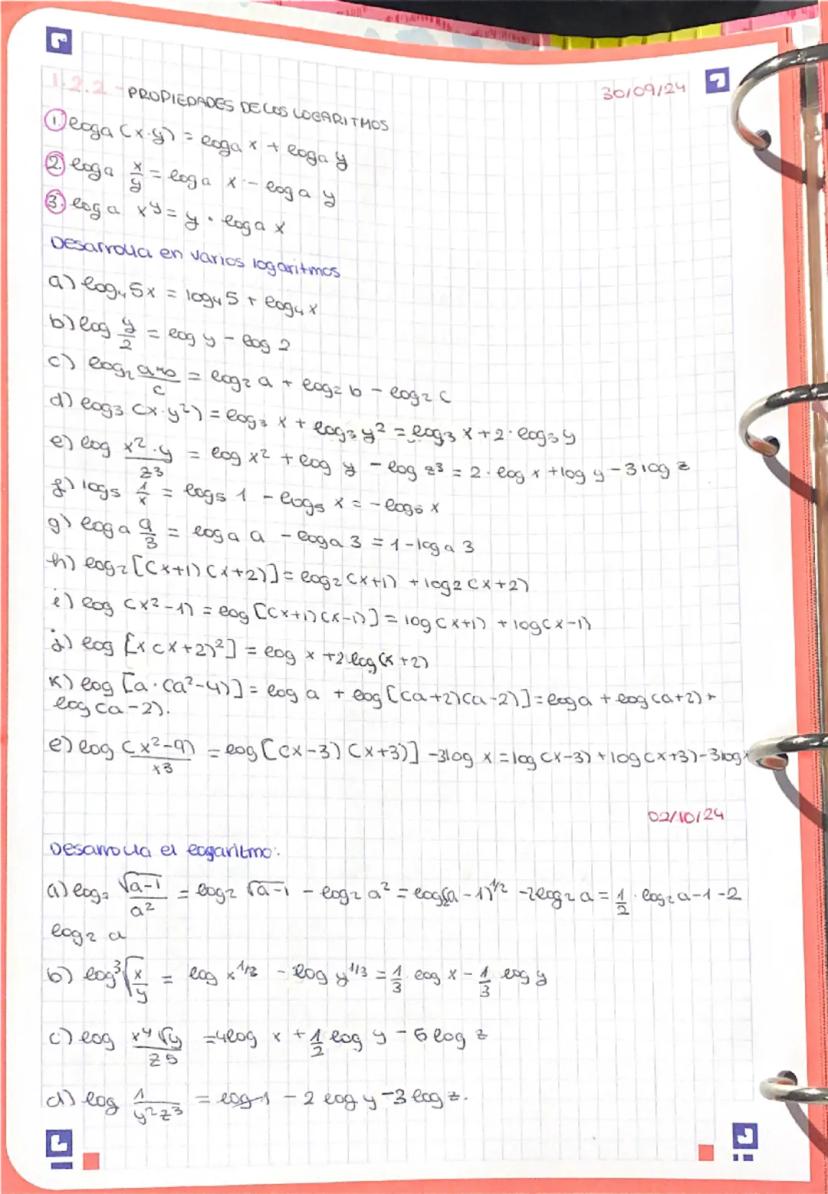 1.2.2 - PROPIEDADES DE LOS LOGARITMOS 30/09/24
1. log_a (x·y) = log_a x + log_a y
2. log_a x/y = log_a x - log_a y
3. log_a x^y = y · log_a x
Desarrolla en varios logaritmos
a) log_4 5x = log_4 5 + log_4 x
b) log y/2 = log y - log 2
c) log_2 a·b/c = log_2 a + log_2 b - log_2 c
d) log_3 (x·y²) = log_3 x + log_3 y² = log_3 x + 2·log_3 y
e) log x²·y/z³ = log x² + log y - log z³ = 2·log x + log y - 3 log z
f) log_5 1/x = log_5 1 - log_5 x = -log_5 x
g) log_a a/3 = log_a a - log_a 3 = 1 - log_a 3
h) log_2 [(x+1)(x+2)] = log_2 (x+1) + log_2 (x+2)
i) log (x²-1) = log [(x+1)(x-1)] = log(x+1) + log(x-1)
j) log [x(x+2)²] = log x + 2 log (x+2)
k) log [a·(a²-4)] = log a + log [(a+2)(a-2)] = log a + log (a+2) +
log (a-2).
l) log (x²-9)/x³ = log [(x-3)(x+3)] - 3log x = log(x-3) + log(x+3) - 3 log x
02/10/24
Desarrolla el logaritmo:
a) log_2 √a-1/a² = log_2 √a-1 - log_2 a² = log_2(a-1)^1/2 - 2log_2 a = 1/2 · log_2 a-1 - 2
log_2 a
b) log ³√x/y = log x^1/3 - log y^1/3 = 1/3 log x - 1/3 log y
c) log x⁴√y/z5 = 4log x + 1/2 log y - 5 log z
d) log 1/y²z³ = log 1 - 2 log y - 3 log z.